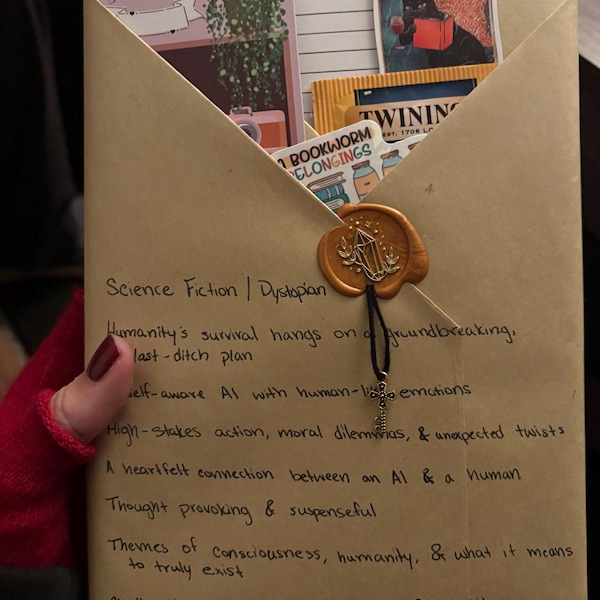 TWININ
EST. 1706 LO
A BOOKWORM
BELONGINGS
Science Fiction / Dystopian
Humanity's survival hangs on a groundbreaking,
last-ditch plan
self-aware AI with human-like emotions
High-stakes action, moral dilemmas, & unexpected twists
A heartfelt connection between an AI & a human
Thought provoking & suspenseful
Themes of consciousness, humanity, & what it means
to truly exist